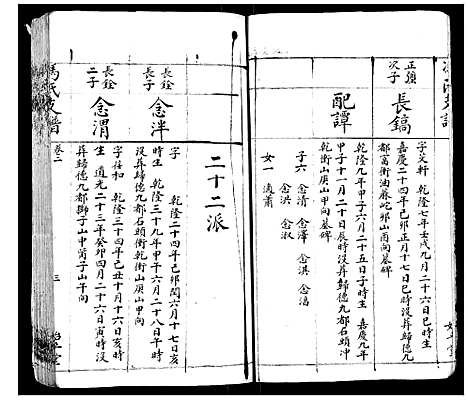 正強次子
長鎬
字文軒 乾隆七年壬戌九月二十六日巳時生
嘉慶二十四年己卯正月十七日巳時没葬歸德九
都高衝油蔴坨卯山酉向墓碑
配譚
乾隆九年甲子六月二十五日子時生 嘉慶九年
甲子十一月二十日辰時没葬歸德九都石頭冲
乾衝山庚山甲向墓碑
子六 念清 念澤 念淇 念
念洪 念淑
女一 適蕭
二十二派
長銓長子
念泮
字 乾隆二十四年己卯閏六月十七日亥
時生 乾隆三十九年甲午六月二十八日午時
没葬歸德九都石頭衝乾衝山庚山甲向
長銓二子
念渭
字任和 乾隆三十四年己丑十月十六日亥時
生 道光二十三年癸卯四月二十六日寅時没
葬歸德九都獅子山中嘴子山午向
馮氏支譜
卷二
三
始平堂